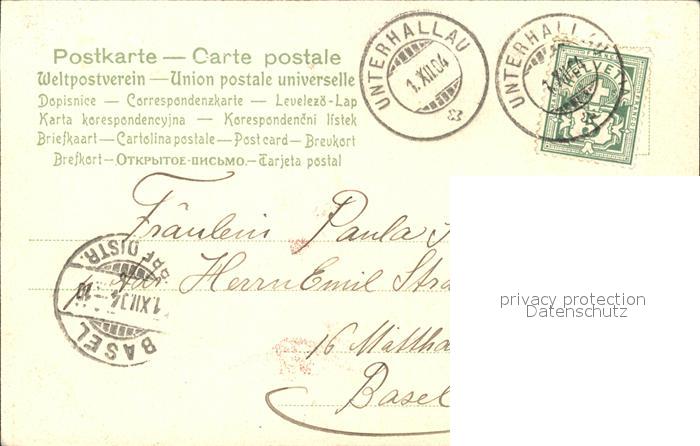 Postkarte — Carte postale
Weltpostverein — Union postale universelle
Dopisnice — Correspondenzkarte — Levelező-Lap
Karta korespondencyjna — Korespondenční lístek
Briefkaart — Cartolina postale — Post card — Brevkort
Brefkort — ОТКРЫТОЕ-ПИСЬМО. — Tarjeta postal
UNTERHALLAU
1.XII.04
UNTERHALLAU
1.XII.04
HELVETIA
Fräulein Paula
Adr. Herrn Emil Stra
16 Mattha
Basel
BASEL
1.XII.04
BRF. DISTR.
privacy protection
Datenschutz